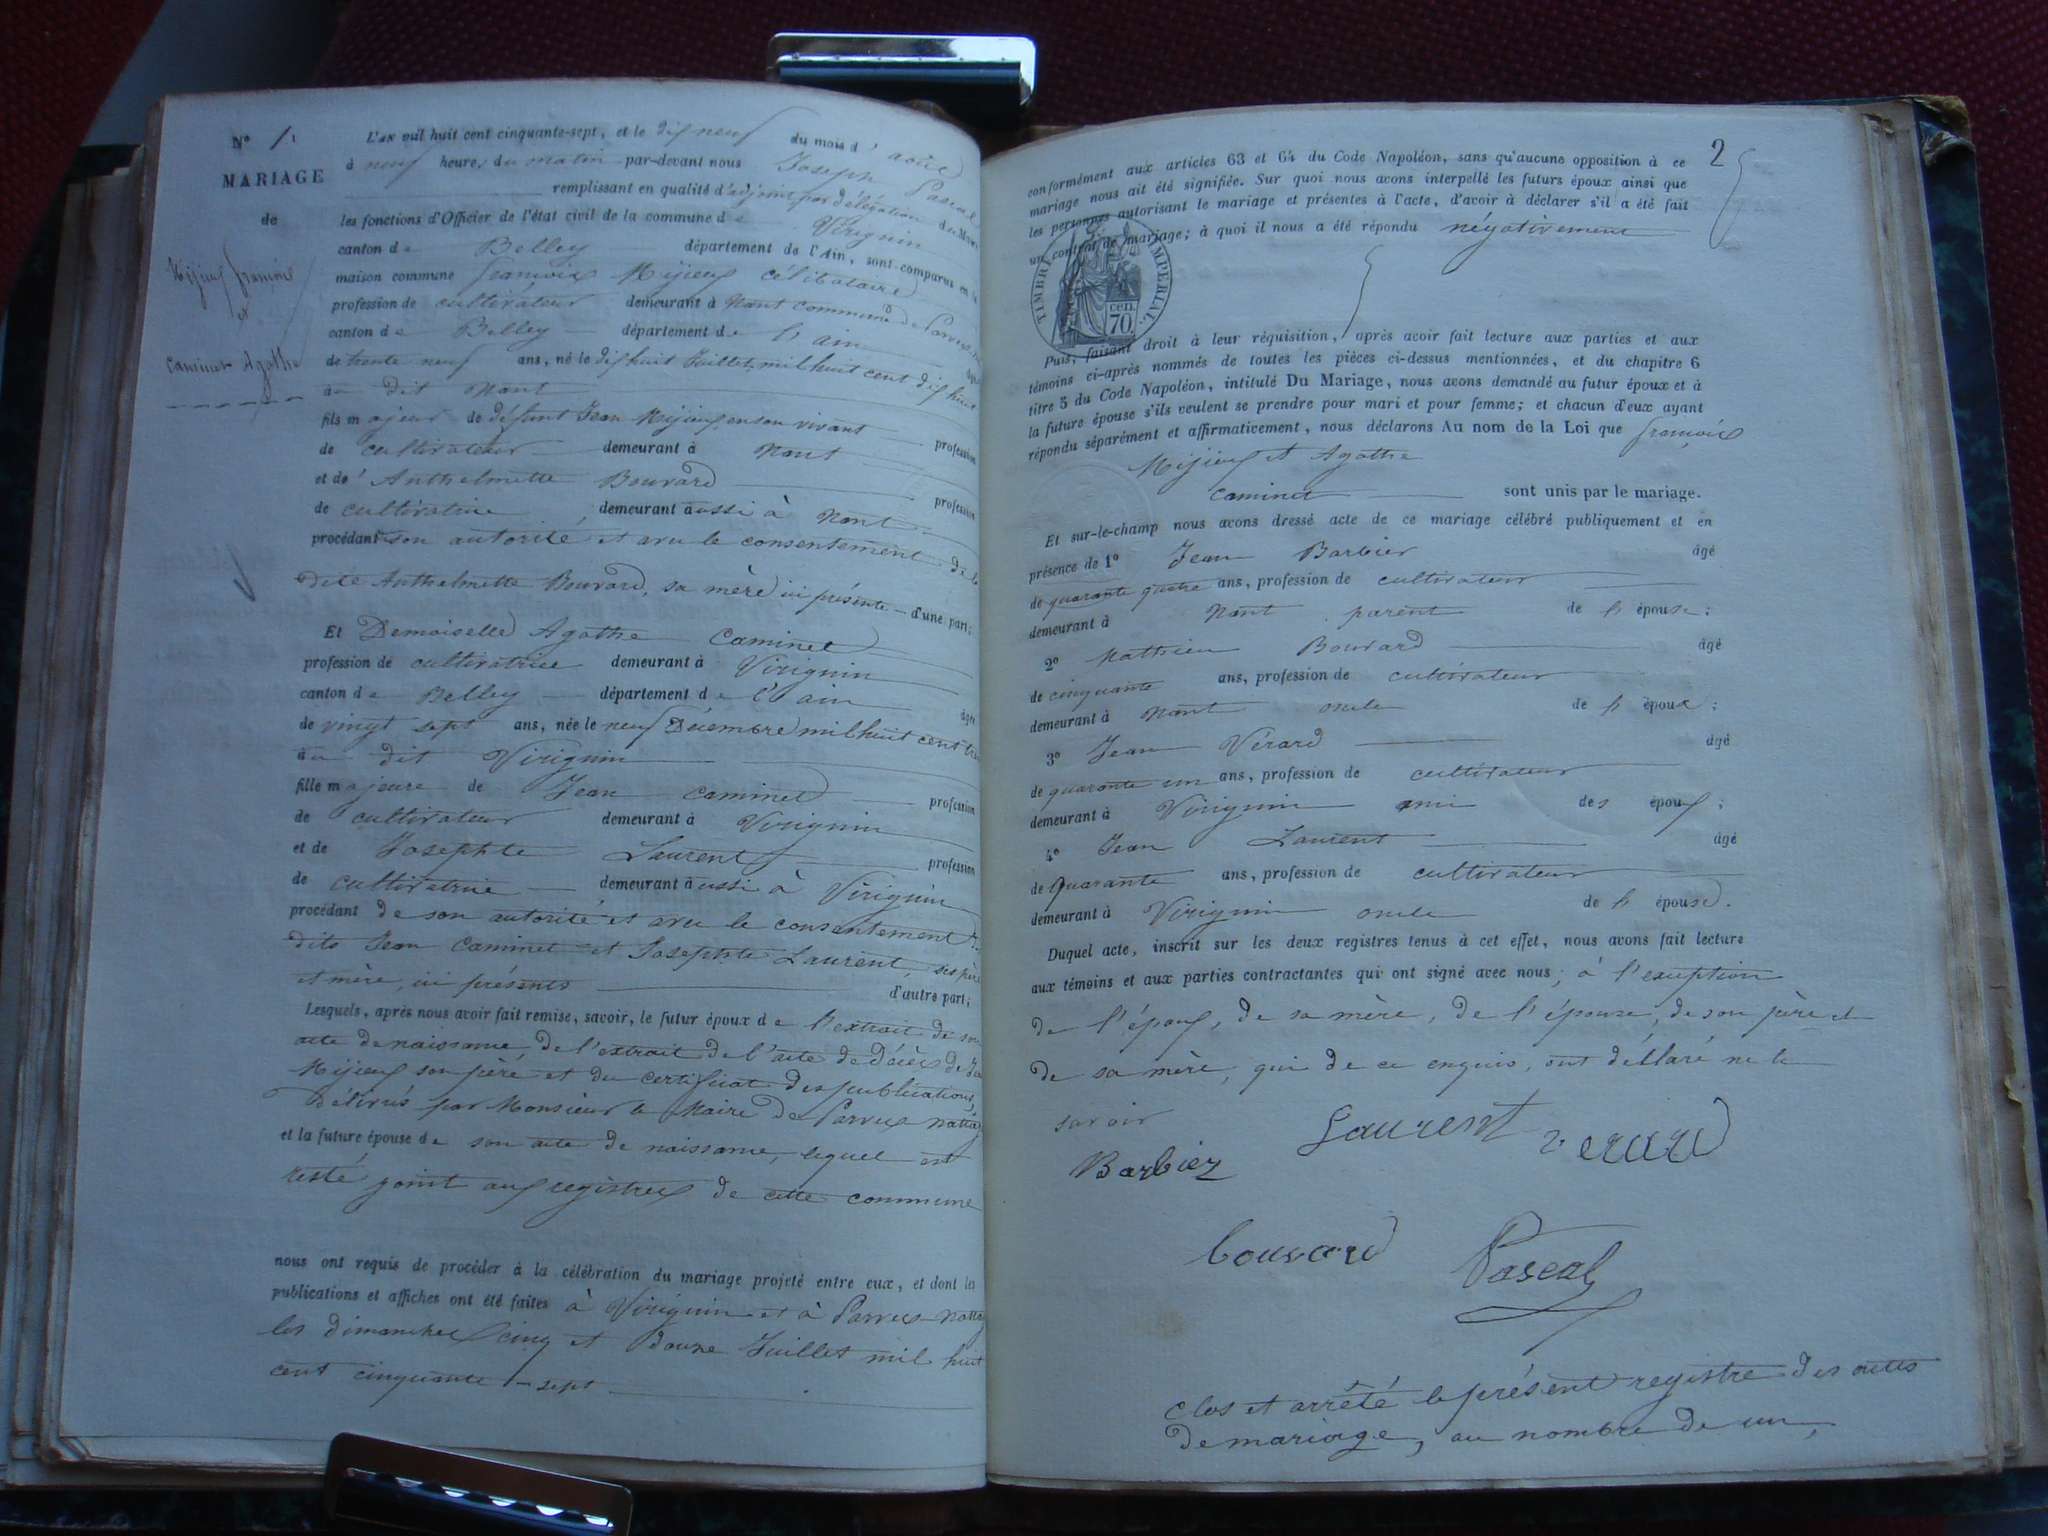 N° 1
MARIAGE
de
Mijieux françois
et
Caminet Agathe
L'AN mil huit cent cinquante-sept, et le dix neuf du mois d'août
à neuf heures du matin par-devant nous Joseph Pascal
remplissant en qualité d'adjoint, par délégation du Maire
les fonctions d'Officier de l'état civil de la commune de Virignin
canton de Belley département de l'Ain, sont comparus en la
maison commune françois Mijieux célibataire
profession de cultivateur demeurant à Nant commune de Parves
canton de Belley département de l'ain
de trente neuf ans, né le dix huit Juillet mil huit cent dix huit
au dit Nant
fils majeur de défunt Jean Mijieux, en son vivant profession
de cultivateur demeurant à Nant
et de Anthelmette Bouvard profession
de cultivatrice demeurant aussi à Nant
procédant son autorité et avec le consentement de la
dite Anthelmette Bouvard, sa mère ici présente d'une part;
Et Demoiselle Agathe Caminet
profession de cultivatrice demeurant à Virignin
canton de Belley département de l'ain âgée
de vingt sept ans, née le neuf Décembre mil huit cent
au dit Virignin
fille majeure de Jean Caminet profession
de cultivateur demeurant à Virignin
et de Josephte Laurent profession
de cultivatrice demeurant aussi à Virignin
procédant de son autorité et avec le consentement
dits Jean Caminet et Josephte Laurent, ses père
et mère, ici présents d'autre part;
Lesquels, après nous avoir fait remise, savoir, le futur époux de l'extrait de son
acte de naissance, de l'extrait de l'acte de Décès de
Mijieux son père et du certificat des publications,
délivrés par Monsieur le Maire de Parves Nattage
et la future épouse de son acte de naissance, lequel est
resté joint aux registres de cette commune
nous ont requis de procéder à la célébration du mariage projeté entre eux, et dont les
publications et affiches ont été faites à Virignin et à Parves Nattage
les dimanches cinq et douze Juillet mil huit
cent cinquante-sept
2
conformément aux articles 63 et 64 du Code Napoléon, sans qu'aucune opposition à ce
mariage nous ait été signifiée. Sur quoi nous avons interpellé les futurs époux ainsi que
les personnes autorisant le mariage et présentes à l'acte, d'avoir à déclarer s'il a été fait
un contrat de mariage; à quoi il nous a été répondu négativement
TIMBRE IMPERIAL
70 cen.
Puis, faisant droit à leur réquisition, après avoir fait lecture aux parties et aux
témoins ci-après nommés de toutes les pièces ci-dessus mentionnées, et du chapitre 6
titre 5 du Code Napoléon, intitulé Du Mariage, nous avons demandé au futur époux et à
la future épouse s'ils veulent se prendre pour mari et pour femme; et chacun d'eux ayant
répondu séparément et affirmativement, nous déclarons Au nom de la Loi que françois
Mijieux et Agathe
Caminet sont unis par le mariage.
Et sur-le-champ nous avons dressé acte de ce mariage célébré publiquement et en
présence de 1° Jean Barbier âgé
de quarante quatre ans, profession de cultivateur
demeurant à Nant parent de l'épouse;
2° Mathieu Bouvard âgé
de cinquante ans, profession de cultivateur
demeurant à Nant oncle de l'époux;
3° Jean Vérard âgé
de quarante un ans, profession de cultivateur
demeurant à Virignin ami des époux;
4° Jean Laurent âgé
de quarante ans, profession de cultivateur
demeurant à Virignin oncle de l'épouse.
Duquel acte, inscrit sur les deux registres tenus à cet effet, nous avons fait lecture
aux témoins et aux parties contractantes qui ont signé avec nous; à l'exception
de l'époux, de sa mère, de l'épouse, de son père et
de sa mère, qui de ce enquis, ont déclaré ne le
savoir
Laurent Verard
Barbier
bouvard Pascal
Clos et arrêté le présent registre des actes
de mariage, au nombre de un,